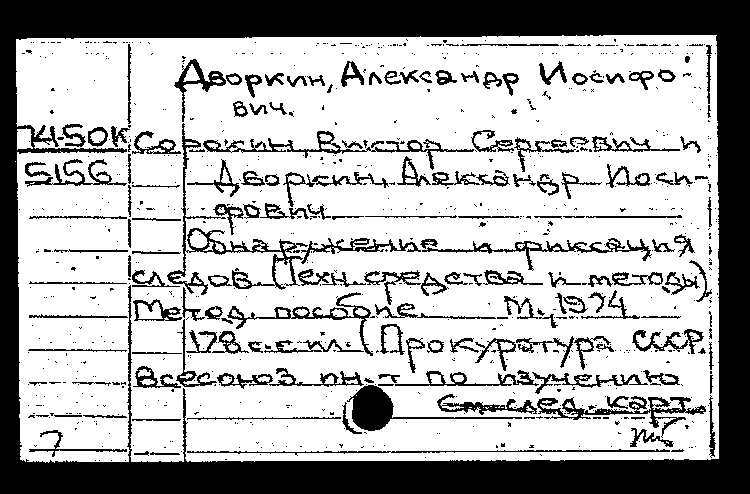 Дворкин, Александр Иосифо-
вич.
74-50К Сорокин, Виктор Сергеевич и
5156 Дворкин, Александр Иоси-
фович.
Обнаружение и фиксация
следов. (Техн. средства и методы).
Метод. пособие. М., 1974.
178 с. с ил. (Прокуратура СССР.
Всесоюз. ин-т по изучению
См. след. карт.
7